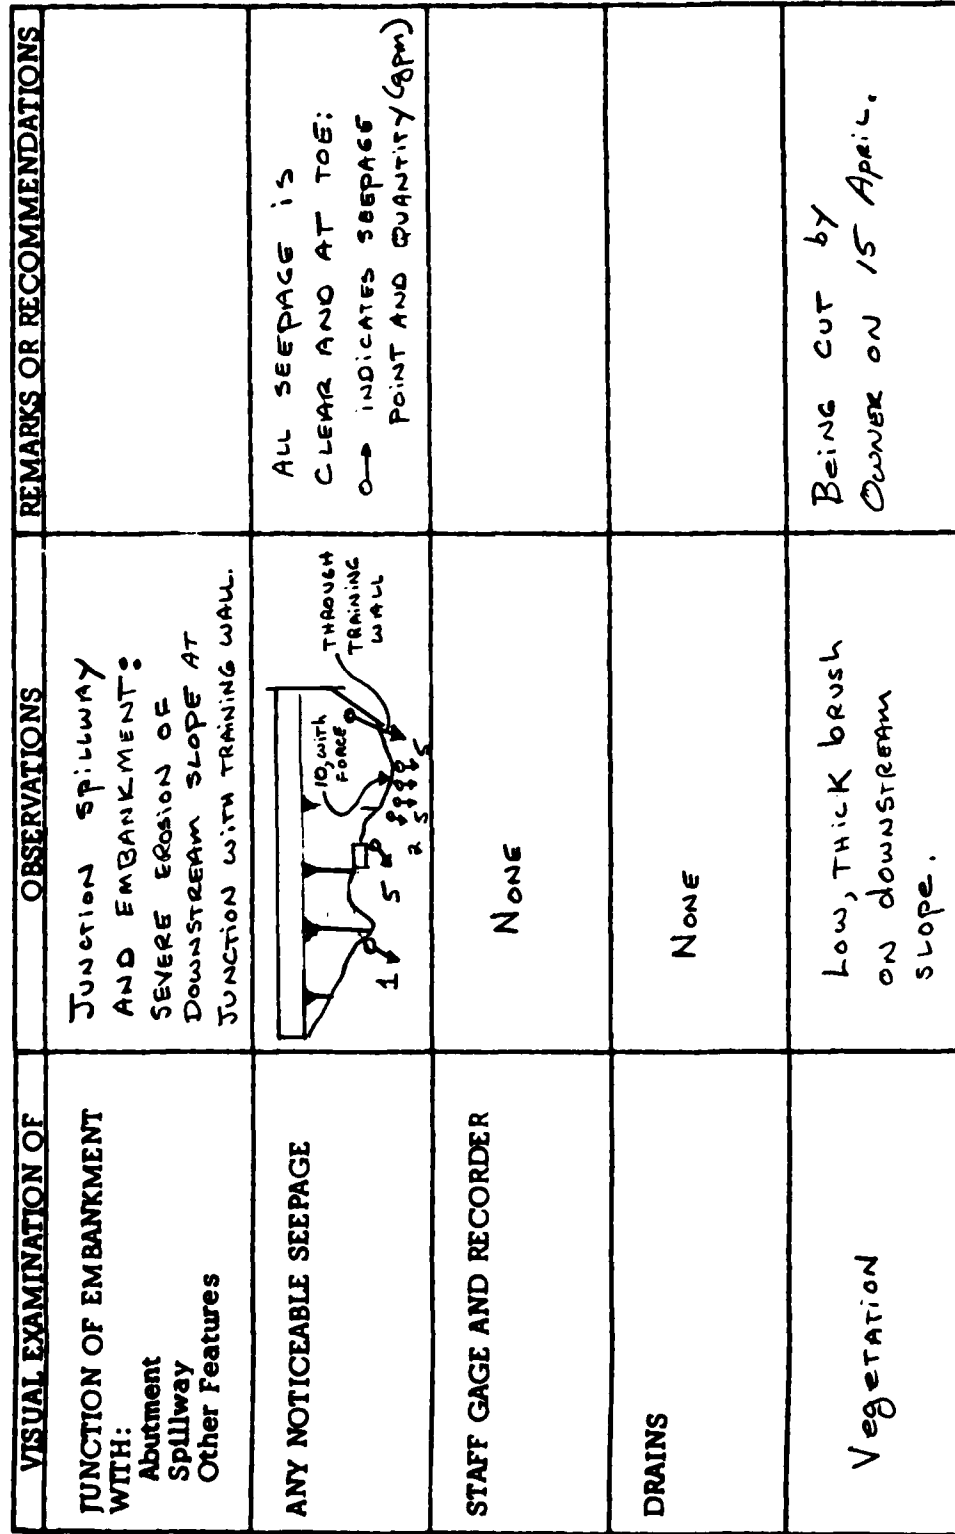 VISUAL EXAMINATION OF
OBSERVATIONS
REMARKS OR RECOMMENDATIONS
JUNCTION OF EMBANKMENT
WITH:
Abutment
Spillway
Other Features
JUNCTION SPILLWAY
AND EMBANKMENT:
SEVERE EROSION OF
DOWNSTREAM SLOPE AT
JUNCTION WITH TRAINING WALL.
ANY NOTICEABLE SEEPAGE
1
5
2
5
5
10, WITH
FORCE
THROUGH
TRAINING
WALL
ALL SEEPAGE iS
CLEAR AND AT TOE:
INDICATES SEEPAGE
POINT AND QUANTITY (gpm)
STAFF GAGE AND RECORDER
NONE
DRAINS
NONE
VegeTATION
LOW, THICK brUSh
ON dOWNSTREAM
SLOPE.
BeiNG CUT by
OWNER ON 15 APRIL.